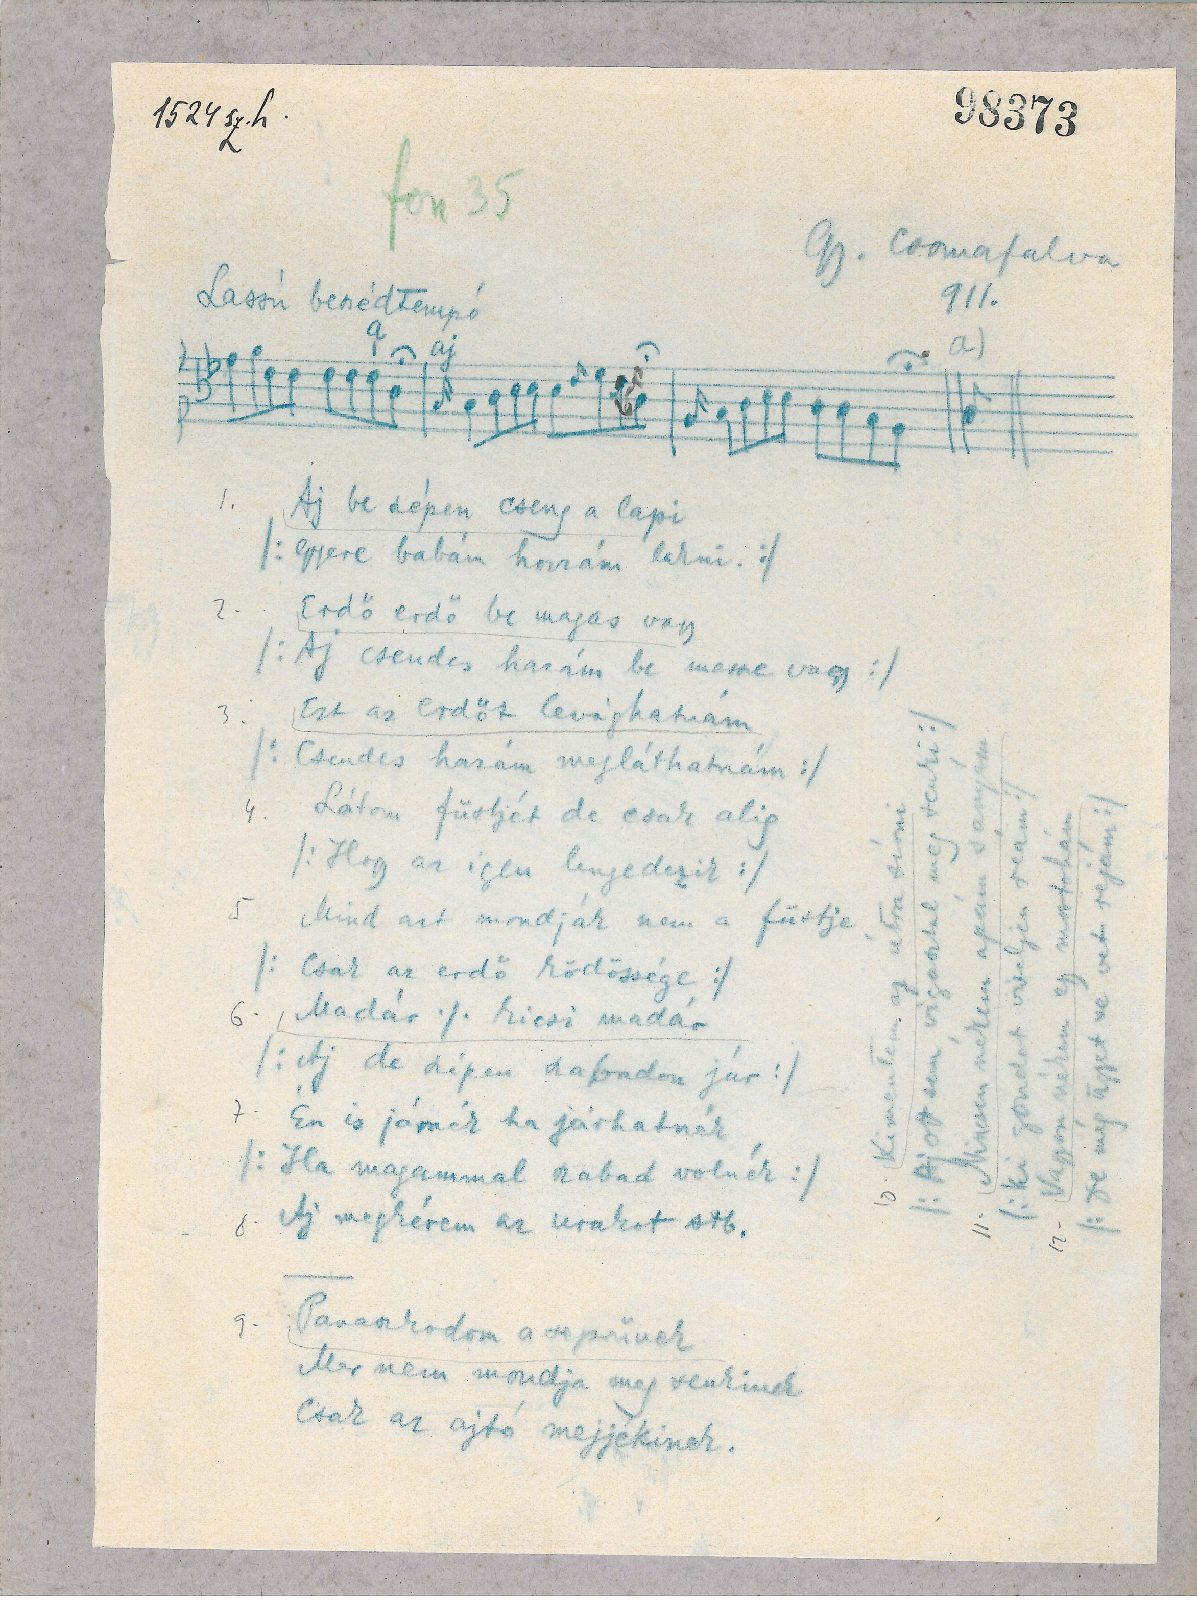 1524 sz. h.
98373
fon 35
Gy. Csomafalva
911.
Lassú beszédtempó
a)
aj
1. Aj be szépen cseng a lapi
/: Gyere babám hozzám lakni. :/
2. Erdő erdő be magas vagy
/: Aj csendes hazám be messe vagy :/
3. Ezt az erdőt levághatnám
/: Csendes hazám megláthatnám :/
4. Látom füstjét de csak alig
/: Hogy az igen lengedezik :/
5 Mind azt mondják nem a füstje
/: Csak az erdő ködössége :/
6. Madár ./. kicsi madár
/: Aj de szépen szabadon jár :/
7. Én is járnék ha járhatnék
/: Ha magammal szabad volnék :/
8. Aj megkérem az urakot stb.
9. Panaszkodom a seprünek
Mer nem mondja meg senkinek
Csak az ajtó mejjékinek.
10. Kimentem az utra sirni
/: Aj ott sem vigasztal meg senki :/
11. Nincsen nekem apám s anyám
/: Ki gondot viseljen reám :/
12. Vagyon nékem egy mostohám
/: De még üget se vetn rejám :/